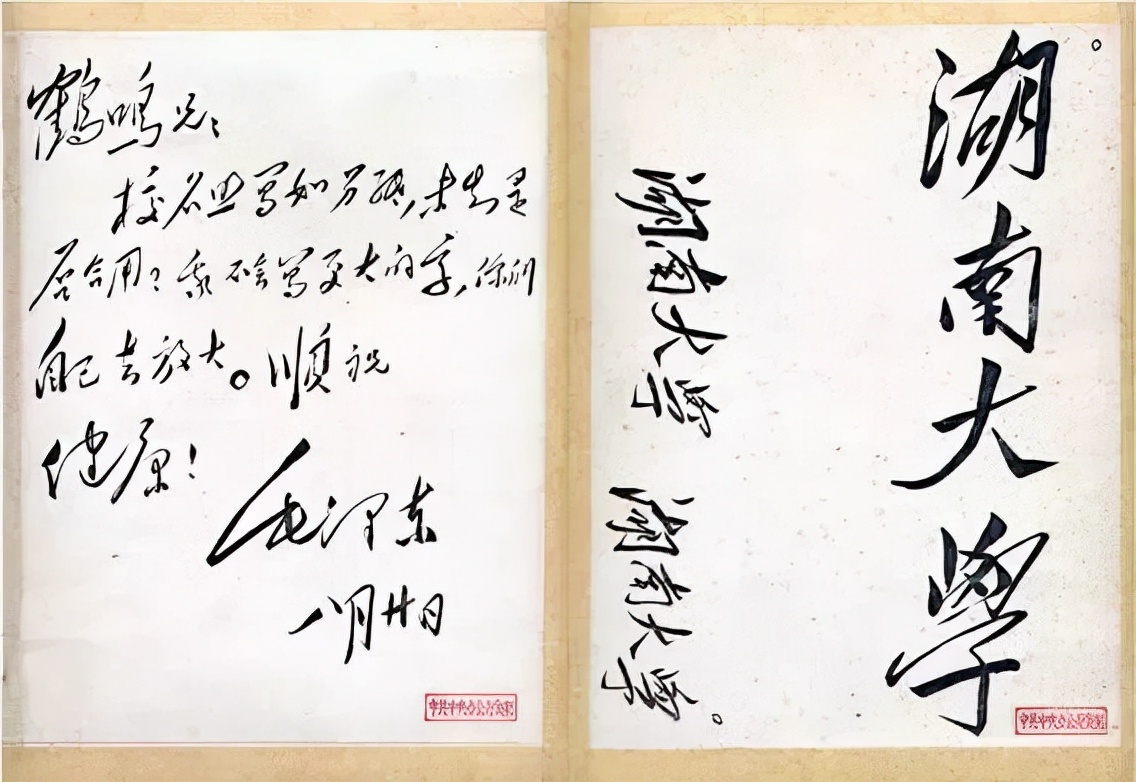 鶴鳴兄：
校名照写如另紙，未知是
否合用？我不会写更大的字，你们
自己去放大。順祝
健康！
毛泽东
八月廿日
湖南大學
湖南大學
湖南大學。